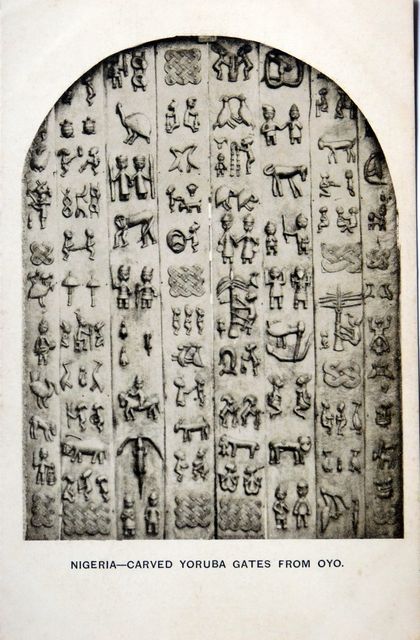 NIGERIA—CARVED YORUBA GATES FROM OYO.